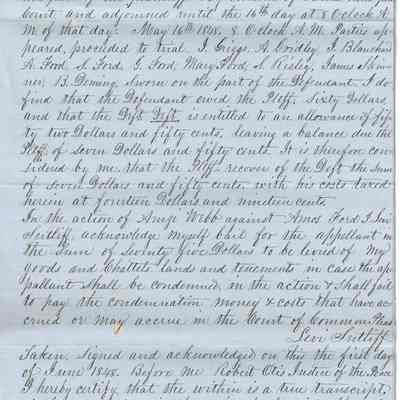 Court and adjourned until the 16th day at 8 Oclock A.
M. of that day. May 16th 1848. 8 Oclock A.M. Parties ap-
peared, proceeded to trial. I. Griggs, A. Cordley, I. Blanchard
A. Ford. S. Ford. G. Ford, Mary Ford, S. Risley, James Skin-
ner; B. Deming, Sworn on the part of the Defendant. I do
find that the Defendant owed the Pltff. Sixty Dollars
and that the Deft is entitled to an allowance of fif-
ty two Dollars and fifty cents, leaving a balance due the
Pltff. of Seven Dollars and fifty cents. It is therefore con-
sidered by me, that the Pltff. recover of the Deft the Sum
of Seven dollars and fifty cents. with his costs taxed
herein at fourteen Dollars and nineteen cents
In the action of Webb against Amos Ford I Levi
Seitliff, acknowledge myself bail for the appellant in
the Sum of Seventy five Dollars to be levied of my
goods and Chattels lands and tenements in case the ap-
pallant Shall be condemned in the action & Shall fail
to pay the condemnation money & costs that have ac-
crued or may accrue in the Court of Common Pleas
Levi Seitliff
Taken, Signed and acknowledged on this the first day
of June 1848. Before Me Robert Otis Justice of the Peace
I hereby certify, that the within is a true transcript,